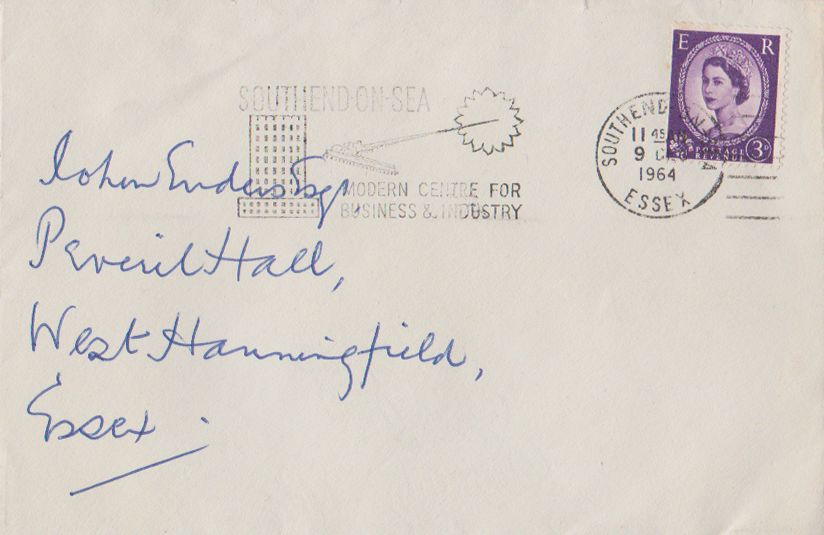 E R
POSTAGE REVENUE 3D
SOUTHEND-ON-SEA
MODERN CENTRE FOR
BUSINESS & INDUSTRY
SOUTHEND-ON-SEA
11 45
9
1964
ESSEX
John Enders Esq,
Peveril Hall,
West Hanningfield,
Essex.